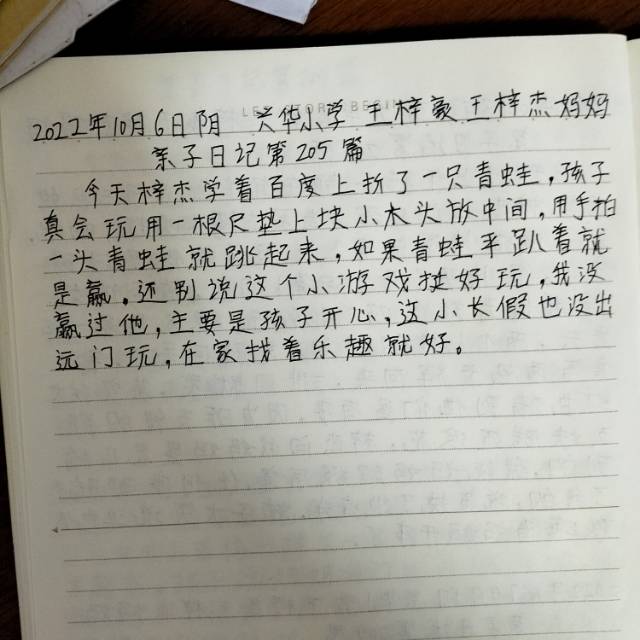 2022年10月6日阴 兴华小学王梓豪王梓杰妈妈
亲子日记第205篇
今天梓杰学着百度上折了一只青蛙，孩子
真会玩用一根尺垫上块小木头放中间，用手拍
一头青蛙就跳起来，如果青蛙平趴着就
是赢。还别说这个小游戏挺好玩，我没
赢过他，主要是孩子开心，这小长假也没出
远门玩，在家找着乐趣就好。